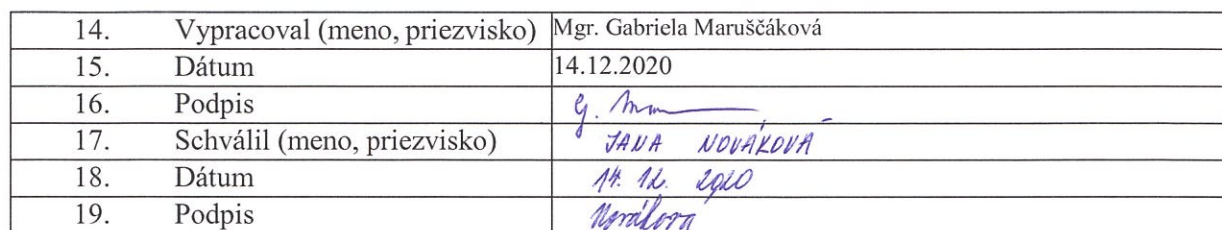 14. Vypracoval (meno, priezvisko) Mgr. Gabriela Maruščáková
15. Dátum 14.12.2020
16. Podpis G.
17. Schválil (meno, priezvisko) JANA NOVÁKOVÁ
18. Dátum 14. 12. 2020
19. Podpis Nováková